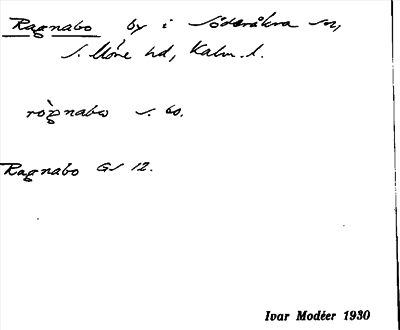 Ragnabo by i Söderåkra sn,
S. Möre hd, Kalm. l.
rògnabo s. 60.
Ragnabo GS 12.
Ivar Modéer 1930